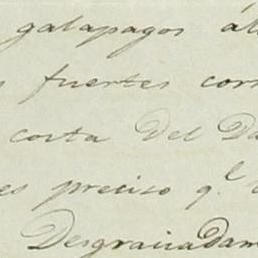 galapagos ál
fuertes corr
costa del Da
es preciso q.e
Desgraciadam